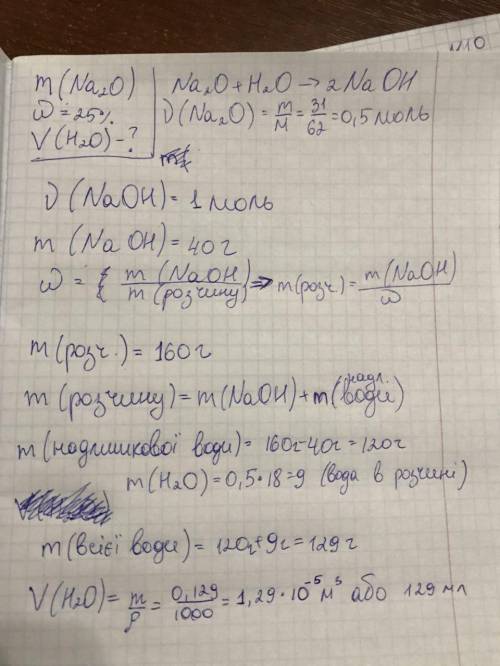 m(Na₂O)
ω = 25%
V(H₂O) - ?
Na₂O + H₂O → 2NaOH
ν(Na₂O) = m/M = 31/62 = 0,5 моль
ν(NaOH) = 1 моль
m(NaOH) = 40г
ω = { m(NaOH)/m(розчину) => m(розч.) = m(NaOH)/ω
m(розч.) = 160г
m(розчину) = m(NaOH) + m(надл. води)
m(надлишкової води) = 160г-40г = 120г
m(H₂O) = 0,5·18 = 9 (вода в розчині)
m(всієї води) = 120г + 9г = 129г
V(H₂O) = m/ρ = 0,129/1000 = 1,29·10⁻⁵ м³ або 129 мл